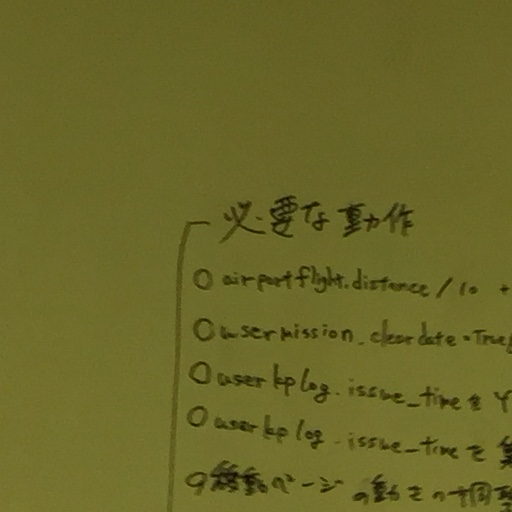 必要な動作
○ airportflight.distance / 10 +
○ usermission.cleardate = True
○ userkplog.issue_time を
○ userkplog.issue_time を
ページの動きの調整